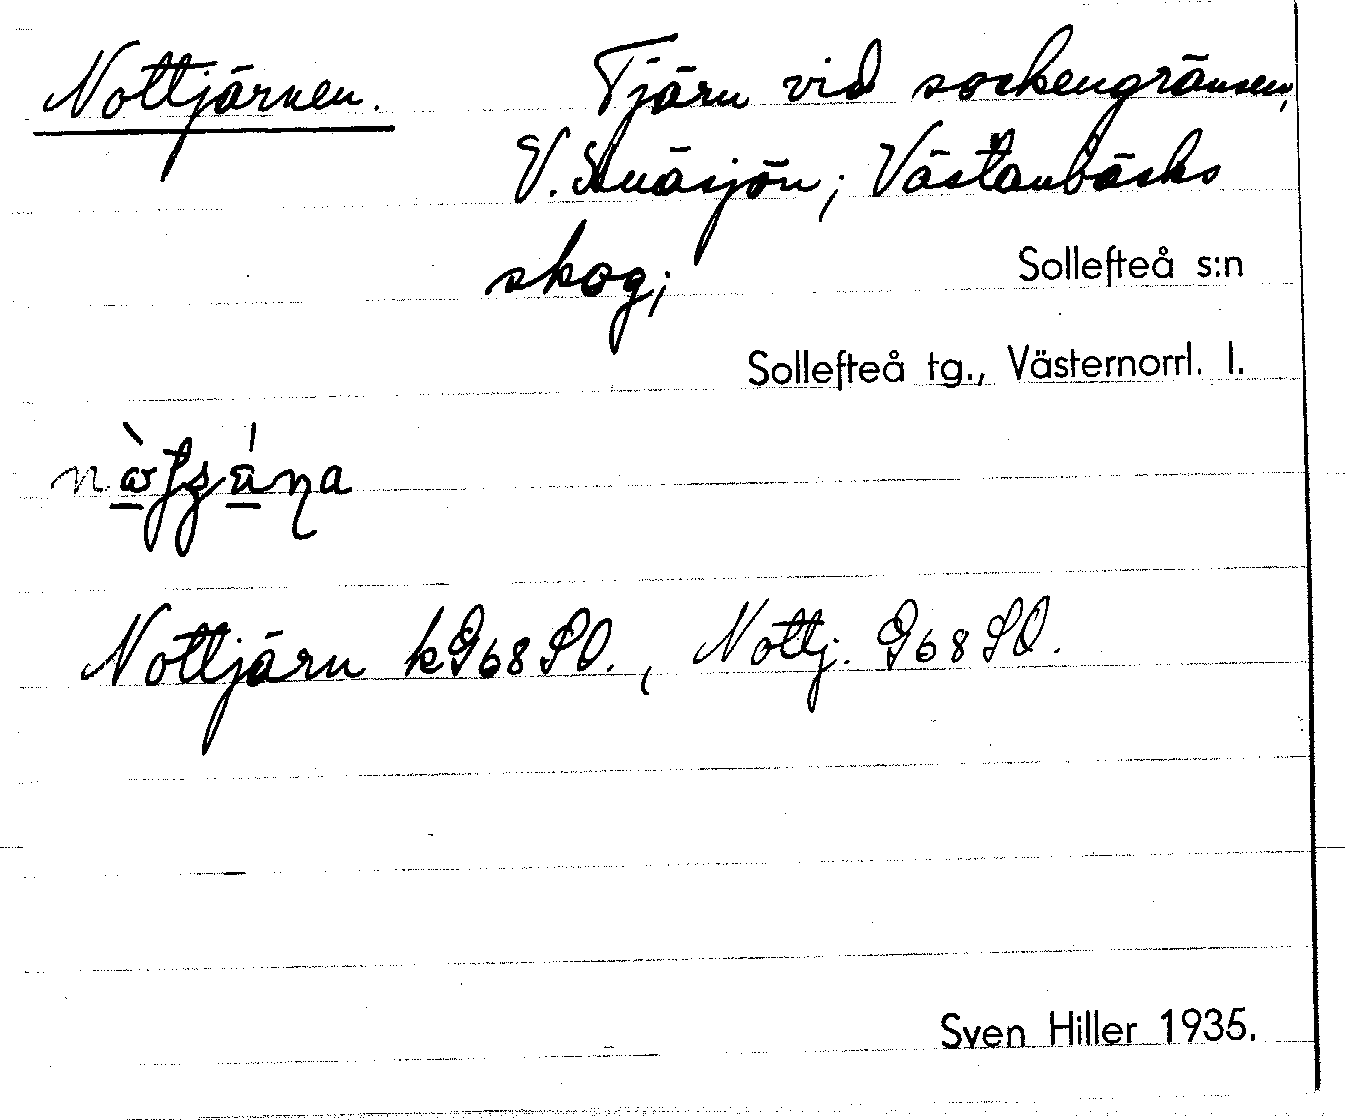 Nottjärnen. Tjärn vid sockengränsen,
V. Knäsjön; Västanbäcks
skog; Sollefteå s:n
Sollefteå tg., Västernorrl. l.
Nottjärn kG68SO., Nottj. G68SO.
Sven Hiller 1935.